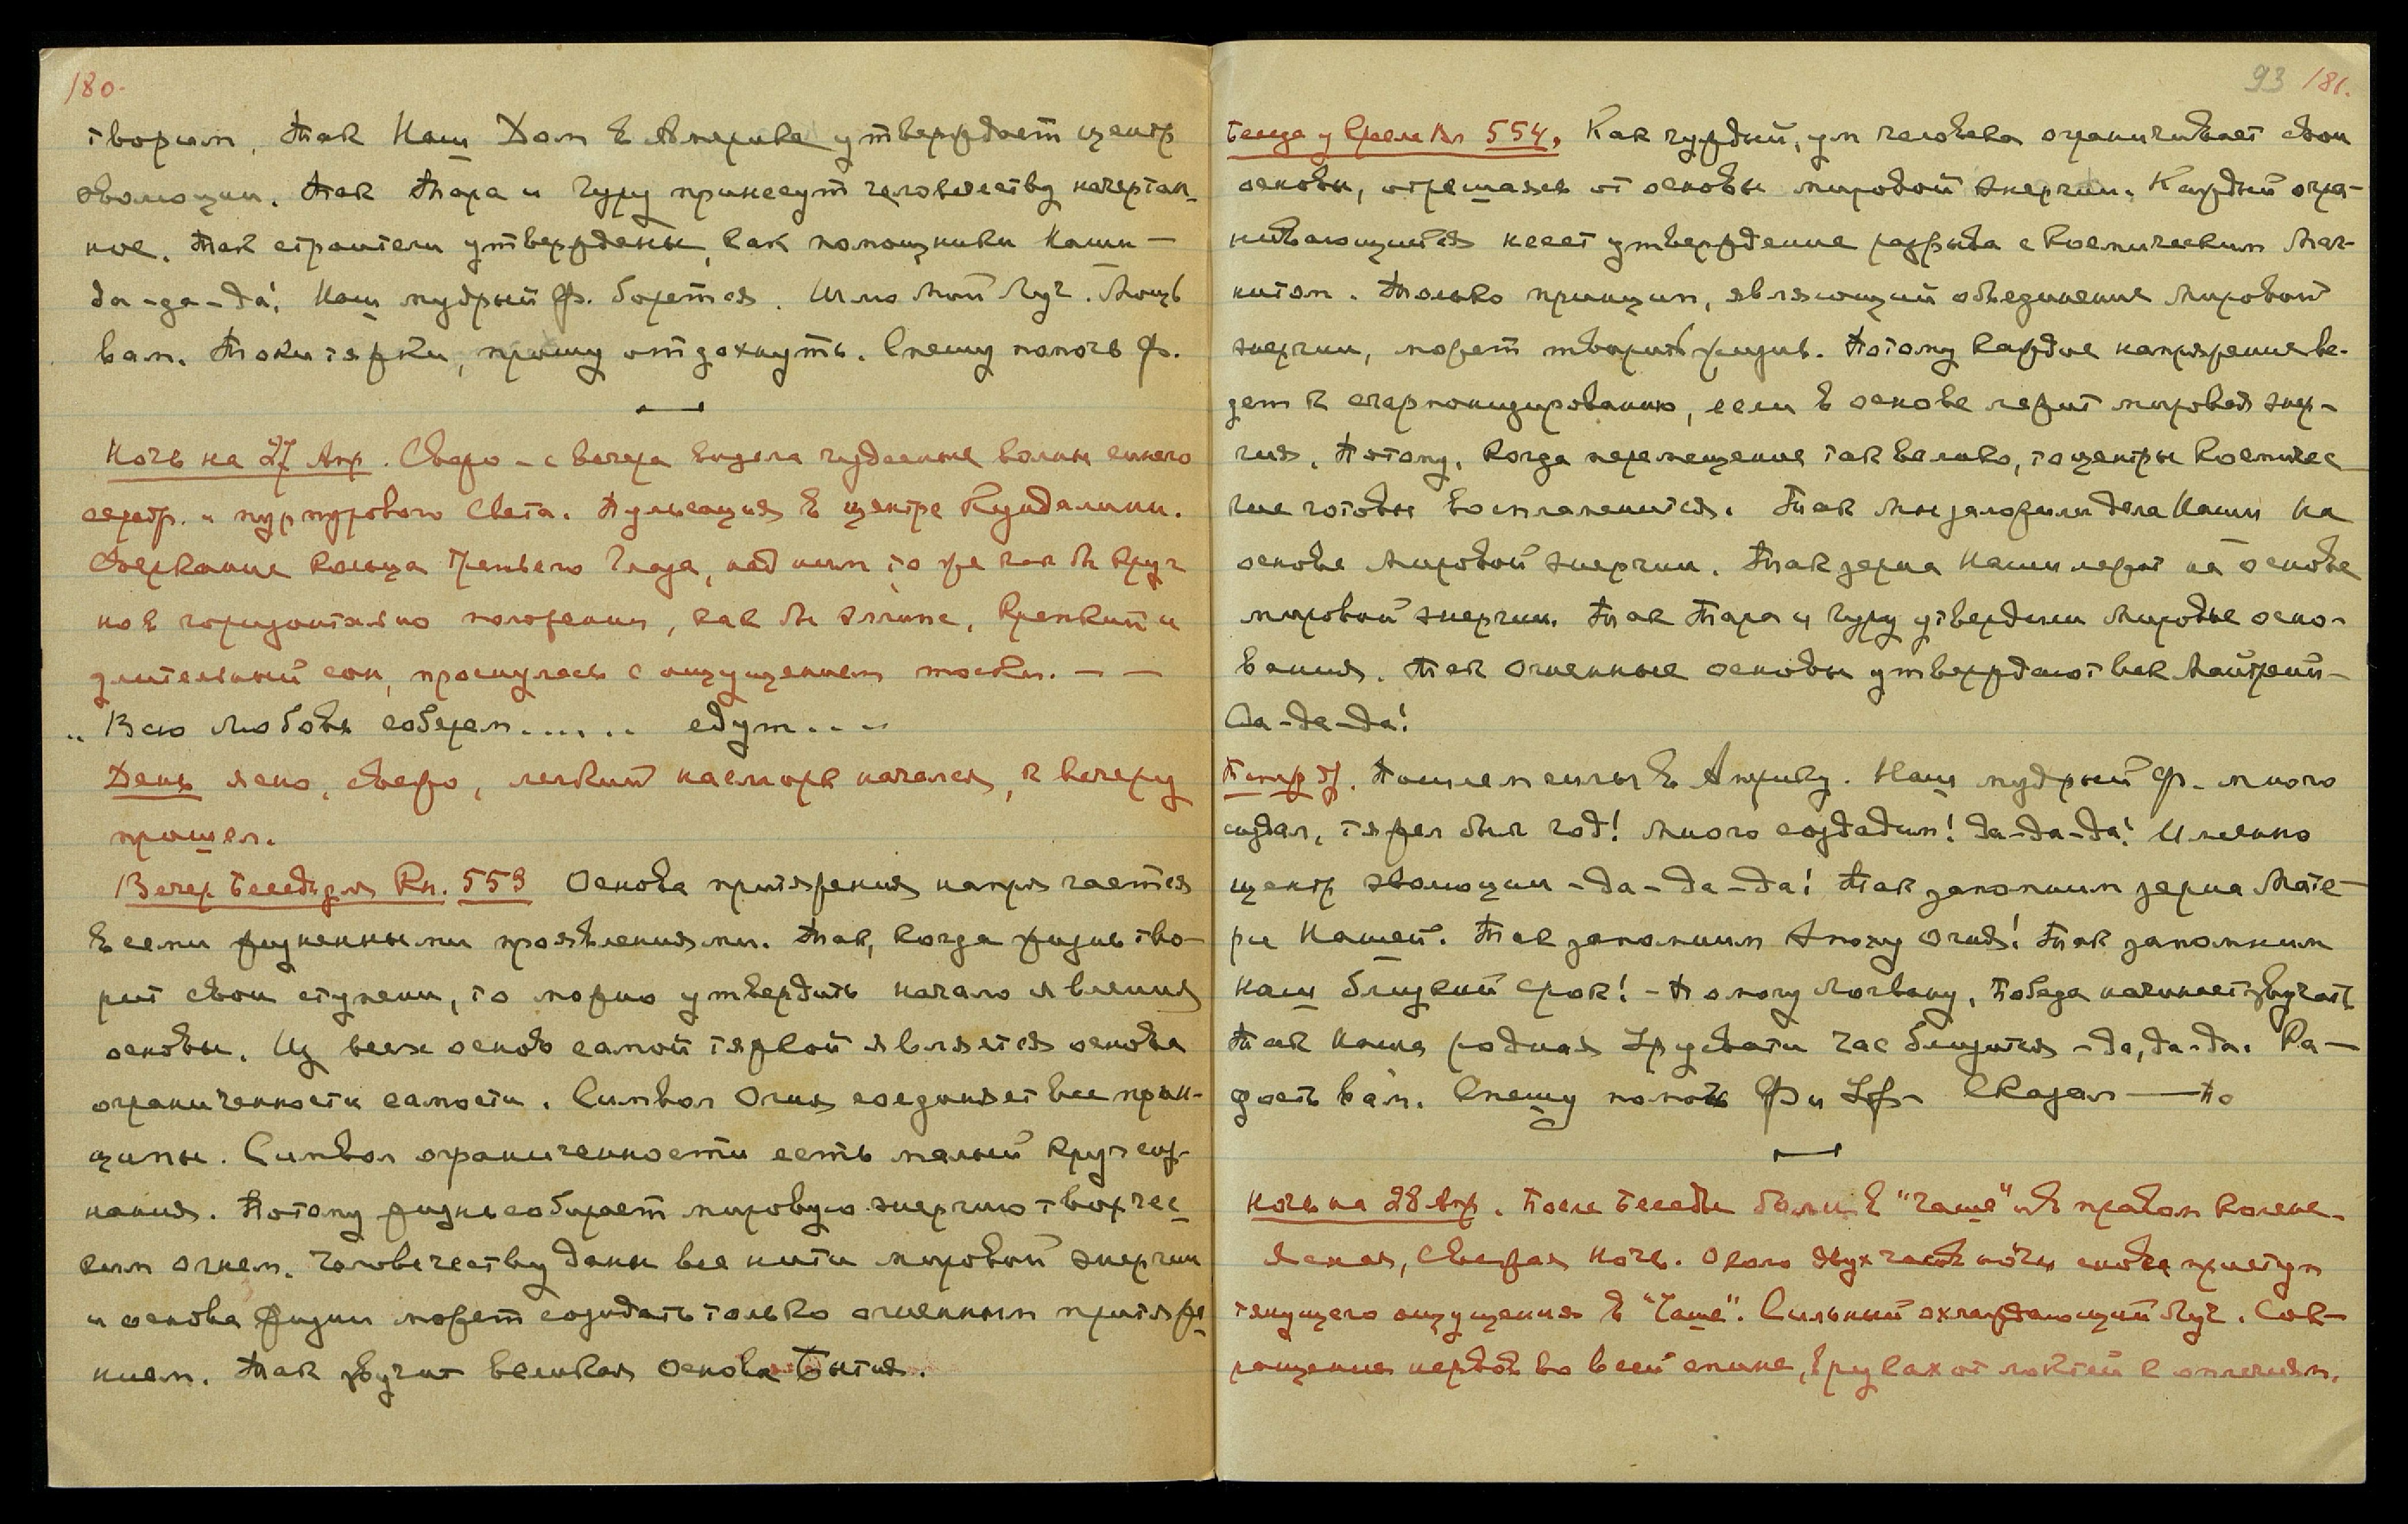 180.
творим. Так Наш Дом в Америке утверждает центр
эволюции. Так Тара и Гуру принесут человечеству начертан-
ное. Так строители утверждены, как помощники Наши —
да-да-да! Наш мудрый Ф. борется. Шлю Мой Луч. Мощь
вам. Токи тяжки, прошу отдохнуть. Спешу помочь Ф.
Ночь на 27 Апр. Свежо – с вечера видела чудесные волны синего
серебр. и пурпурового света. Пульсация в центре Кундалини.
Сверкание кольца Третьего Глаза, над ним то же как бы круг
но в горизонтально положении, как бы эллипс, крепкий и
длительный сон, проснулась с ощущением тоски. — —
„ Всю любовь соберем...... едут....
День ясно, свежо, легкий насморк начался, к вечеру
прошел.
Вечер Беседы для Кн. 553 Основа притяжения напрягается
всеми жизненными проявлениями. Так, когда жизнь тво-
рит свои ступени, то можно утвердить начало явления
основы. Из всех основ самой тяжкой является основа
ограниченности самости. Символ Огня соединяет все прин-
ципы. Символ ограниченности есть малый круг соз-
нания. Потому жизнь собирает мировую энергию творчес-
ким огнем. Человечеству даны все нити мировой энергии
и основа жизни может созидать только огненным притяже-
нием. Так звучит великая основа Бытия.
93 181.
Беседа у Кресла Кн 554. Как чуждый, ум человека ограничивает свои
основы, отрешаясь от основы мировой энергии. Каждый огра-
ничивающийся несет утверждение разрыва с Космическим Маг-
нитом. Только принцип, являющий объединение мировой
энергии, может творить жизнь. Потому каждое напряжение ве-
дет к сгармонизированию, если в основе лежит мировая энер-
гия. Потому, когда перемещение так велико, то центры космичес-
кие готовы воспламениться. Так мы заложили дела Наши на
основе мировой энергии. Так зерна Наши лежат на основе
мировой энергии. Так Тара и Гуру утвердили мировые осно-
вания. Так огненные основы утверждают век Майтрейи —
Да-да-да!
Пошлем силы в Америку. Наш мудрый Ф. много
создал, тяжел был год! Много создадим! Да-да-да! Именно
центр эволюции – да-да-да! Так запомним зерна Мате-
ри Нашей. Так запомним Эпоху Огня! Так запомним
Наш близкий срок! – Помогу Логвану, победа начинает звучать
Так Наша родная Урусвати час близится – да, да-да. Ра-
дость вам. Спешу помочь Ф и Сказал —
Ночь на 28 Апр. После Беседы боли в "Чаше" и в правом колене.
Ясная, свежая ночь. Около двух часов ночи снова приступ
тянущего ощущения в "Чаше". Сильный охлаждающий Луч. Сок-
ращения нервов во всей спине, в руках от локтей к оплечиям.